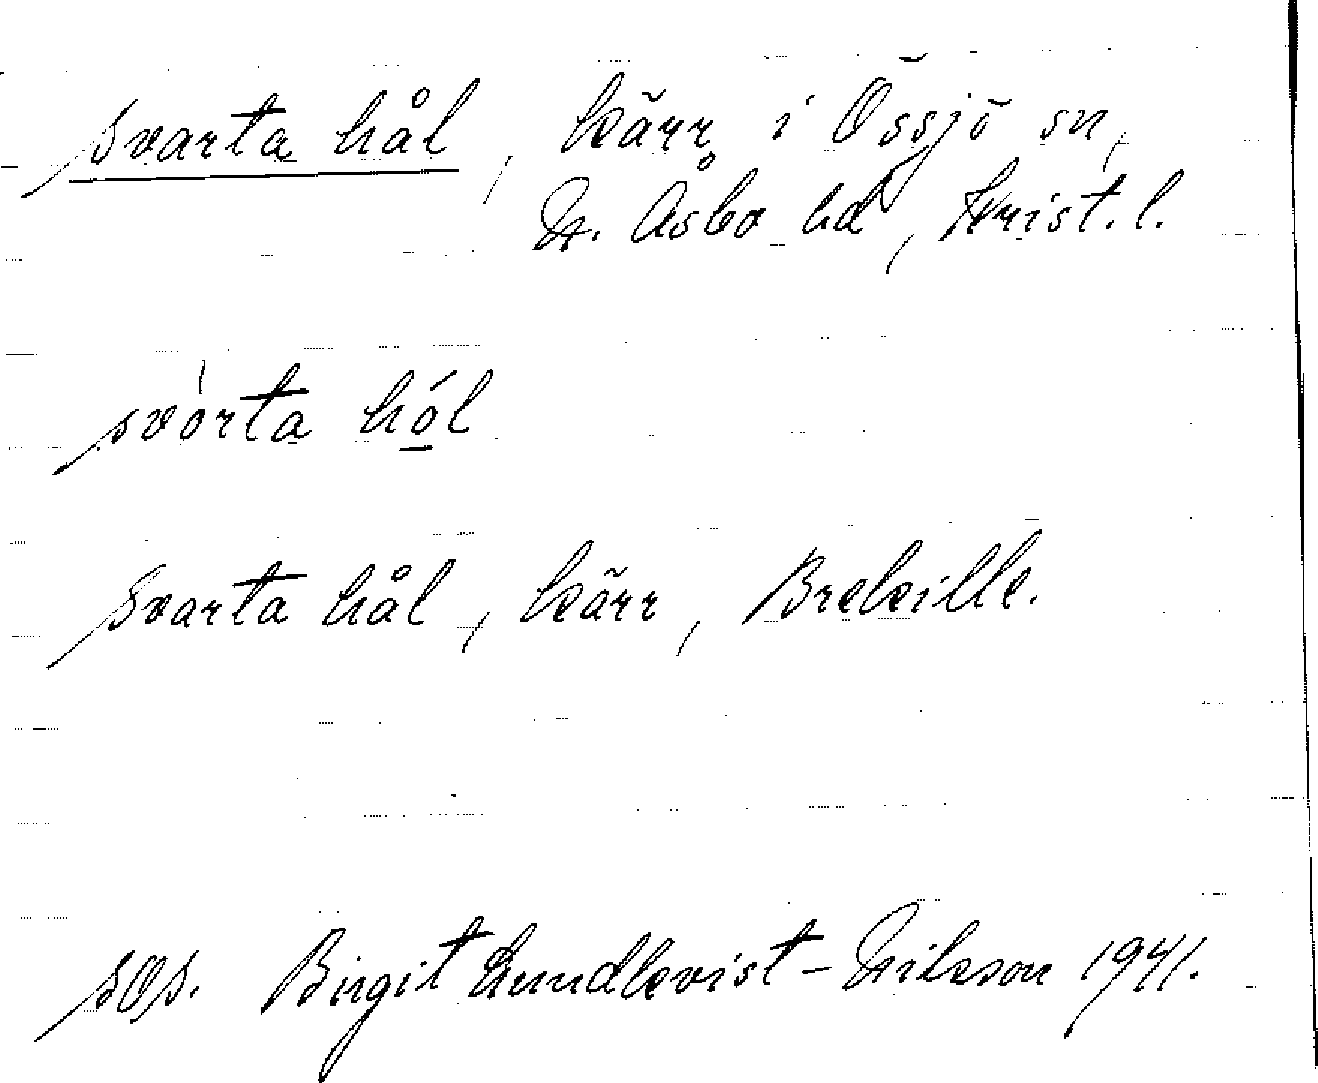 Svarta hål, kärr i Össjö sn,
N. Åsbo hd, Krist. l.
svòrta hól
Svarta hål, kärr, Brekille.
sos. Birgit Lundkvist-Nilsson 1941.